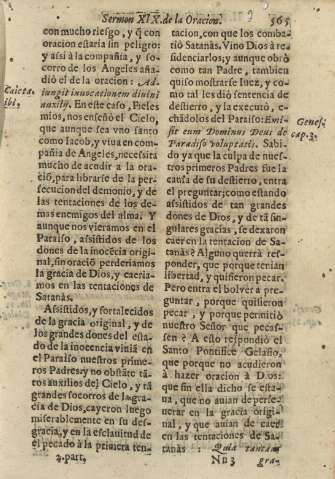 Sermon XIX. de la Oracion. 565
con mucho riesgo, y q̃ con
oracion estaria sin peligro:
y assi à la compañia, y so-
corro de los Angeles aña-
dió el de la oracion: Ad-
iungit invocationem divini
auxilij. En este caso, Fieles
mios, nos enseñó el Cielo,
que aunque sea vno santo
como Iacob, y viua en com-
pañia de Angeles, necessita
mucho de acudir a la ora-
ció, para librarse de la per-
secucion del demonio, y de
las tentaciones de los de-
mas enemigos del alma. Y
aunque nos vieramos en el
Paraiso, assistidos de los
dones de la inocẽcia origi-
nal, sin oració perderiamos
la gracia de Dios, y caeria-
mos en las tentaciones de
Satanàs.
Assistidos, y fortalecidos
de la gracia original, y de
los grandes dones del esta-
do de la inocencia viviã en
el Paraiso nuestros prime-
ros Padres, y no obstãte tã-
tos auxilios del Cielo, y tã
grandes socorros de la gra-
cia de Dios, cayeron luego
miserablemente en su des-
gracia, y en la esclauitud de
el pecado à la primera ten-
2. part,
Caieta.
ibi.
tacion, con que los comba-
tió Satanàs. Vino Dios à re-
sidenciarlos, y aunque obró
como tan Padre, tambien
quiso mostrarse Iuez, y co-
mo tal les dió sentencia de
destierro, y la executó, e-
chàdolos del Paraiso: Emi-
sit eum Dominus Deus de
Paradiso voluptatis. Sabi-
do ya que la culpa de nues-
tros primeros Padres fue la
causa de su destierro, entra
el preguntar; como estando
assistidos de tan grandes
dones de Dios, y de tã sin-
gulares gracias, se dexaron
caer en la tentacion de Sa-
tanàs? Alguno querrà res-
ponder, que porque tenian
libertad, y quisieron pecar.
Pero entra el bolver a pre-
guntar, porque quisieron
pecar, y porque permitiò
nuestro Señor que pecas-
sen? A esto respondió el
Santo Pontifice Gelasio,
que porque no acudieron
à hazer oracion à Dios:
que sin ella dicho se esta-
ua, que no auian de perse-
uerar en la gracia origi-
nal, y que auian de caer
en las tentaciones de Sa-
tanàs: Quia tantam
Nn 3 gra-
Genes.
cap. 3.